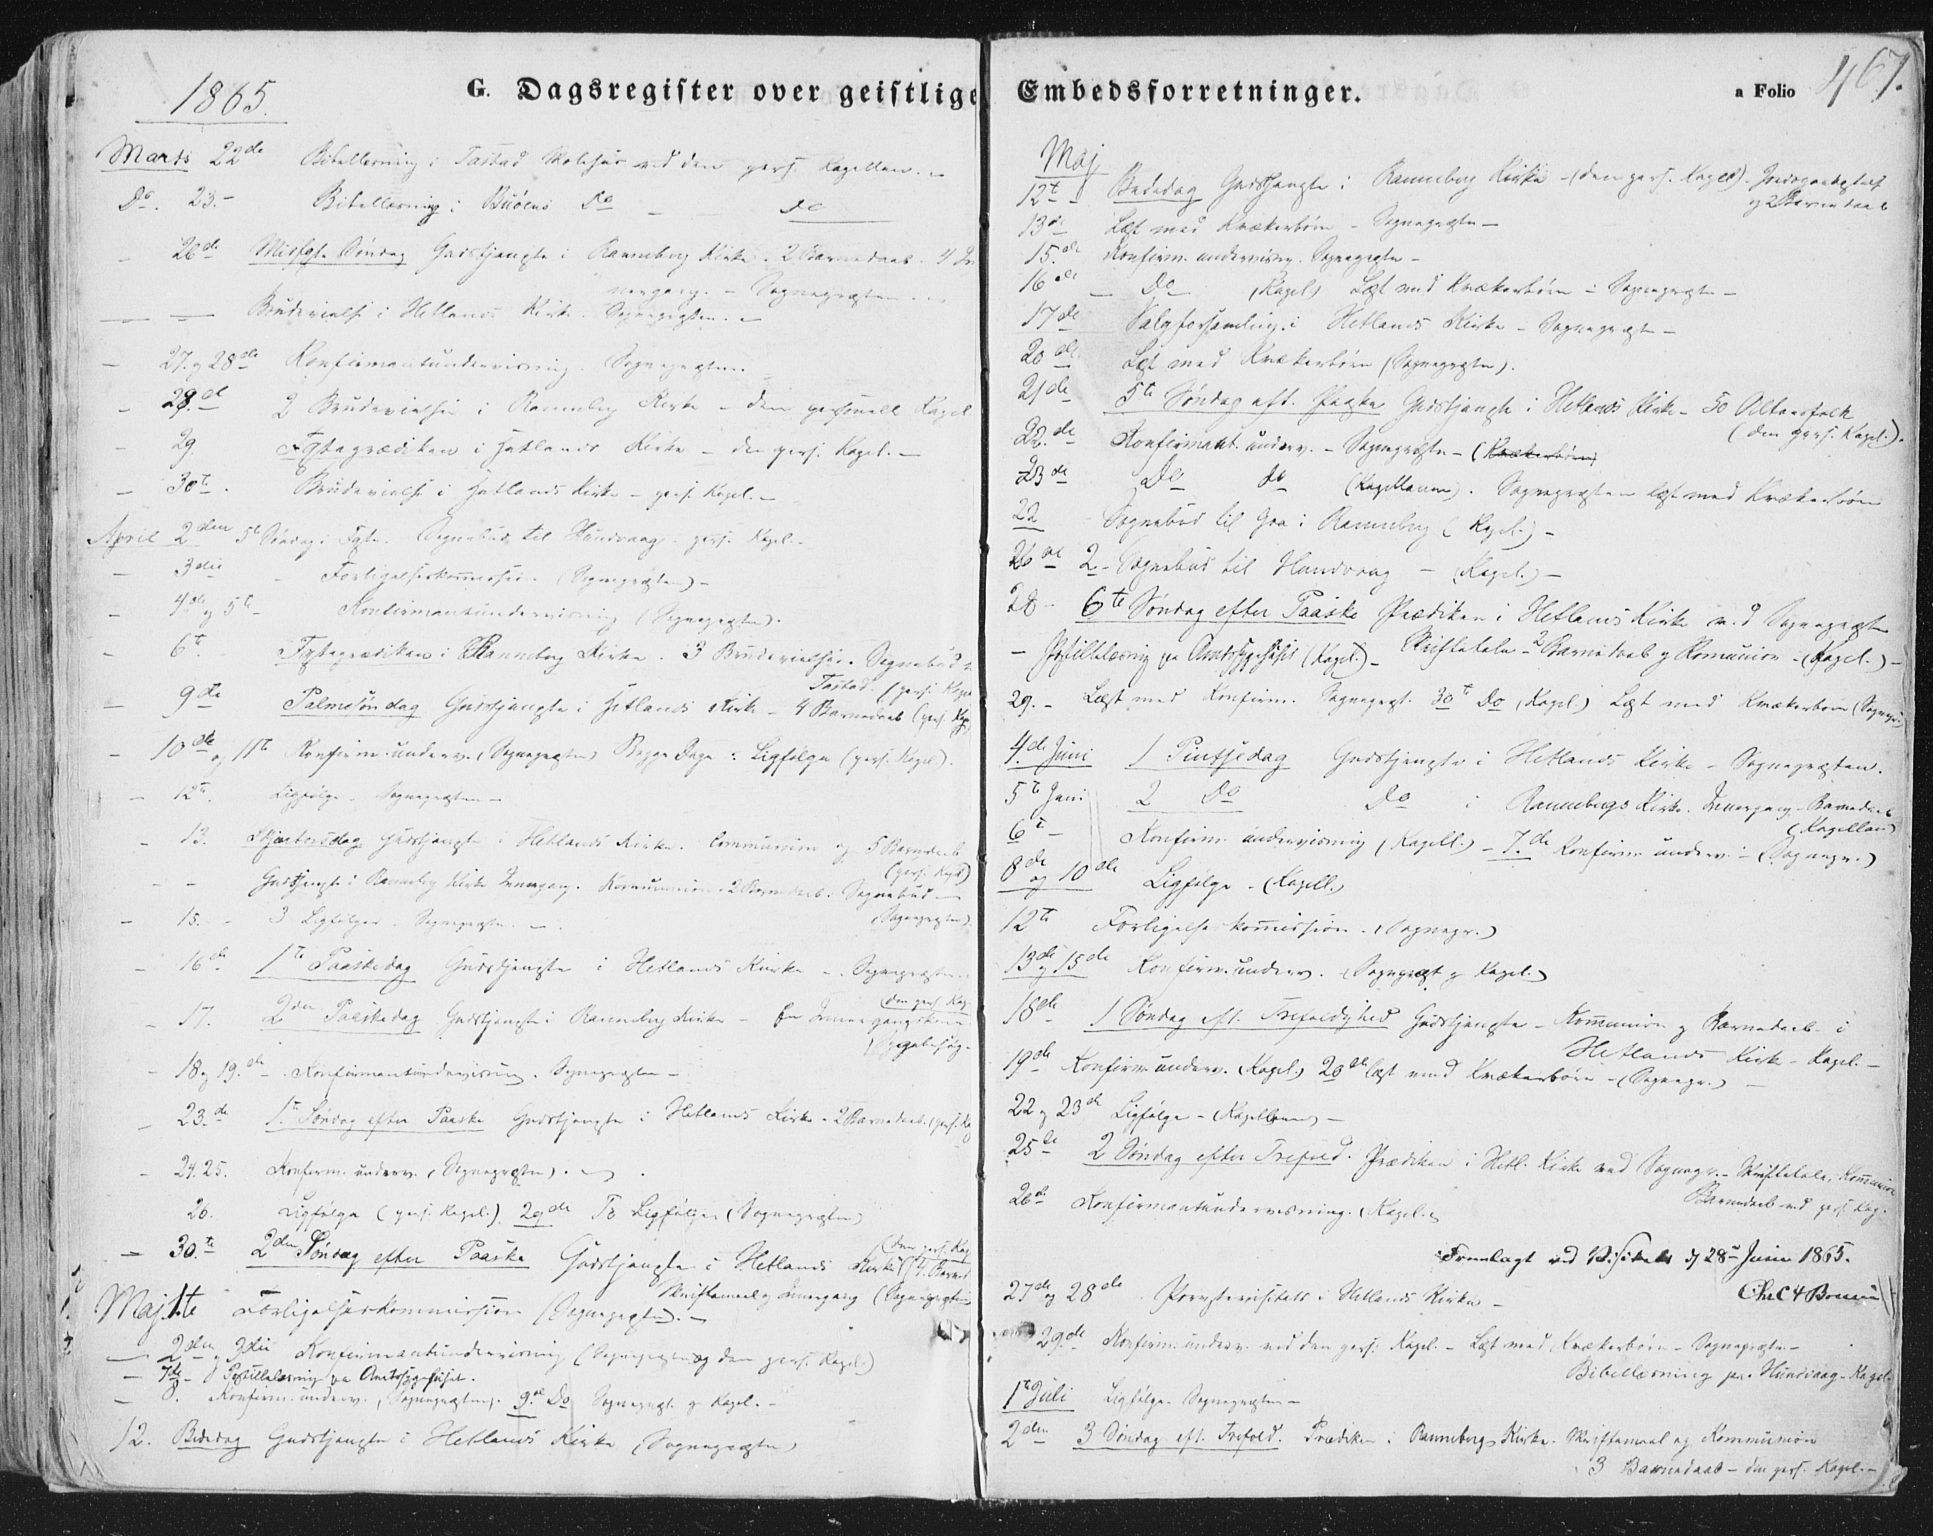 1865.
G. Dagsregister over geistlige
Marts 22de Bibellæsning i Tastad Skolehus ved den pers. Kapellan. -
Do. 23.- Bibellæsning i Buøens Do - Do
- 26de Midfaste Søndag Gudstjeneste i Ranneberg Kirke. 2 Barnedaab.
- Sognepræsten
Brudevielse i Hetlands Kirke. Sognepræsten. -
- 27. og 28de Konfirmantundervisning. Sognepræsten.
- 28.de 2 Brudevielser i Ranneberg Kirke - den personell Kapel
- 29 Fasteprædiken i Hetlands Kirke - den pers. Kapel. -
- 30te. Brudevielse i Hetlands Kirke - pers. Kapel. -
April 2den 5te Søndag i Faste. Sognebud til Hundvaag. pers. Kapel.
- 3die - Forligelseskommission. (Sognepræsten) -
- 4de og 5te - Konfirmantundervisning (Sognepræsten).
- 6te Fasteprædiken i Ranneberg Kirke. 3 Brudevielser. Sognebud
Tastad. (pers. Kapel
- 9de Palmesøndag Gudstjeneste i Hetlands Kirke - 4 Barnedaab (pers. Kap.
- 10de og 11te Konfirm. underv. (Sognepræsten) Begge Dage: Ligfølge (pers. Kapel).
- 12te. Ligfølge. Sognepræsten -
- 13. Skjærtorsdag Gudstjeneste i Hetlands Kirke. Communion og 5 Barnedaab
(pers. Kapel)
- - Gudstjeneste i Ranneberg Kirke Innergang. Kommunion. 2 Barnedaab. Sognebud -
(Sognepræsten)
- 15. - 3 Ligfølger. Sognepræsten. -
- 16de 1te Paaskedag Gudstjeneste i Hetlands Kirke -. Sognepræsten
(den pers. Kap.
- 17. 2den Paaskedag Gudstjeneste i Ranneberg Kirke - En Innergangskone
Sygebesøg -
- 18 og 19.de - Konfirmantundervisning. Sognepræsten -
- 23.de 1te Søndag efter Paaske Gudstjeneste i Hetlands Kirke - 2 Barnedaab. (pers. Ka
- 24. 25. Konfirm. underv. (Sognepræsten).
26. Ligfølge (pers. Kapel.). 29de To Ligfølger (Sognepræsten)
(den pers. Kap
- 30te 2den Søndag efter Paaske Gudstjeneste i Hetlands Kirke
Skriftemaal og Innergang (Sognepræsten
Maj 1te Forligelseskommission (Sognepræsten). -
- 2den og 3die Konfirmantundervisning (Sognepræsten og den pers. Kapel.)
- 7de - Postillelæsning paa Amtssygehuset.
- 8. Konfirm. underv. (Sognepræsten). 9de Do Sognepræst. og Kapel. -
12. Bededag Gudstjeneste i Hetlands Kirke (Sognepræsten)
Embedsforretninger.
a Folio 467.
Maj
12te - Bededag Gudstjeneste i Ranneberg Kirke - (den pers. Kapel).
og 2 Barnedaab
13de Læst med Kvækerbørn - Sognepræsten -
15.de Konfirm. underviisn. Sognepræsten -
16de - Do (Kapel) Læst med Kvækerbørn - Sognepræsten -
17de Valgforsamling i Hetlands Kirke - Sognepræst -
20de. Læst med Kvækerbørn (Sognepræsten).
21de 5te Søndag eft. Paaske Gudstjeneste i Hetlands Kirke - 50 Altersfolk
(den pers. Kapel.).
22.de Konfirmant. underv. - Sognepræsten - (Kvækerbørn)
23de Do do (Kapellanen). Sognepræsten læst med Kvækerbørn
22 Sognebud til Goa i Ranneberg (Kapel.) -
26de 2 - Sognebud til Hundvaag - (Kapel.) -
28 - 6te Søndag efter Paaske Prædiken i Hetlands Kirke ved Sognepræsten
- Postillelæsning paa Amtssygehuset (Kapel.) - Skriftetale - 2 Barnedaab og Komunion - (Kapel.) -
29. - Læst med Konfirm. Sognepræst. 30te Do (Kapel.) Læst med Kvækerbørn (Sognepr.)
4de Juni 1 Pintsedag Gudstjeneste i Hetlands Kirke - Sognepræsten.
5te Juni 2 Do Do i Rannebergs Kirke. Innergang - Barnedaab
(Kapellan)
6te - Konfirm. undervisning (Kapell.) - 7.de Konfirm. underv. - (Sognepr.)
8de og 10de Ligfølge - (Kapell.)
12te Forligelseskommission. (Sognepr.)
13de og 15de Konfirm. underv. (Sognepræst og Kapel.)
18de 1 Søndag eft. Trefoldighed Gudstjeneste - Kommunion og Barnedaab i
Hetlands Kirke - Kapel. -
19de Konfirm. underv. (Kapel.) 20de læst med Kvækerbørn - (Sognepr.) -
22 og 23de Ligfølge - (Kapellanen) -
25de 2 Søndag efter Trefold. Prædiken i Hetl. Kirke ved Sognepr. - Skriftetale, Kommunion
Barnedaab ved pers. Kap.
26de Konfirmantundervisning. (Kapel.)
Fremlagt ved Visitats d 28de Juni 1865.
27de og 28de. Provstevisitats i Hetlands Kirke -
29de Konfirm. underv. ved den pers. Kapel. - Læst med Kvækerbørn - Sognepræsten -
Bibellæsning paa Hundvaag - Kapel.
1te Juli Ligfølge. Sognepræsten -
2den 3 Søndag eft. Trefold. Prædiken i Rannebergs Kirke. Skriftemaal og Kommunion
3 Barnedaab - den pers. Kapel. -